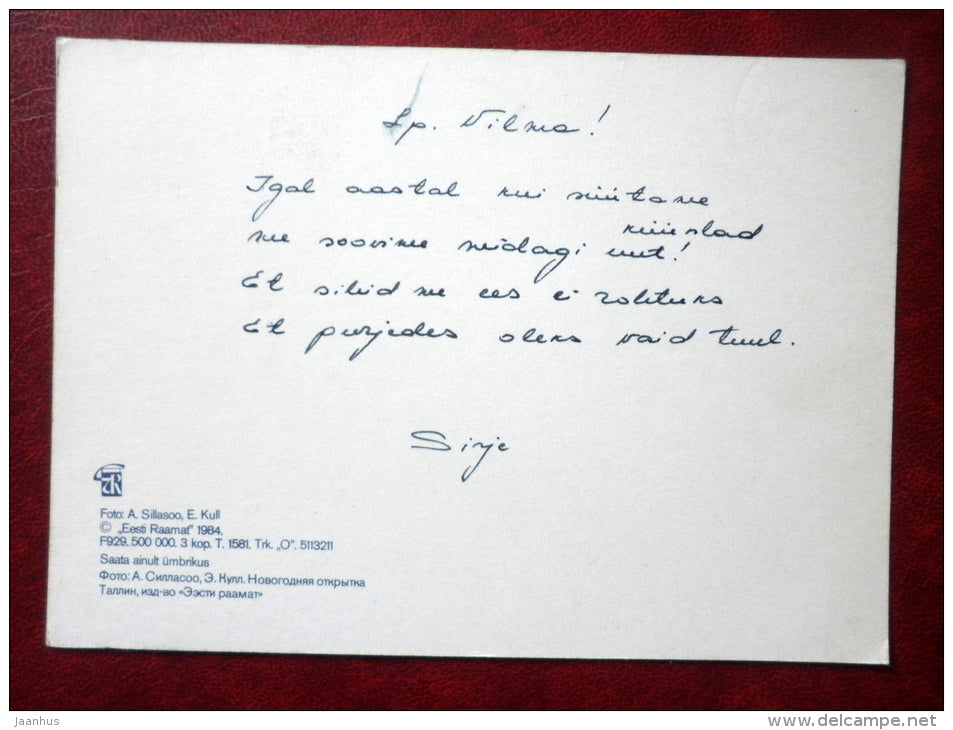 Lp. Vilma!
Igal aastal kui süütame
küünlad
me soovime midagi uut!
Et sihid me ees ei
Et purjedes oleks vaid tuul.
Sirje
ER
Foto: A. Sillasoo, E. Kull
© „Eesti Raamat" 1984.
F929. 500 000. 3 kop. T. 1581. Trk. „O". 5113211
Saata ainult ümbrikus
Фото: А. Силласоо, Э. Кулл. Новогодняя открытка
Таллин, изд-во «Ээсти раамат»
jaanhus
www.delcampe.net